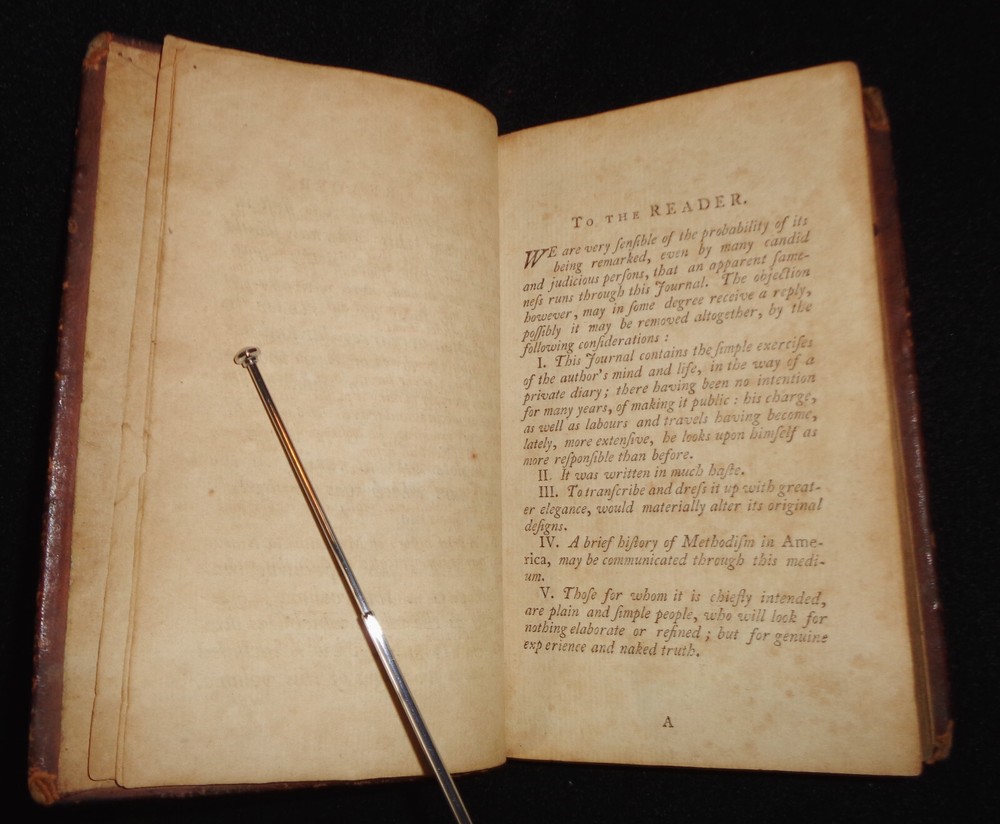 To the READER.
WE are very ſenſible of the probability of its
being remarked, even by many candid
and judicious perſons, that an apparent ſame-
neſs runs through this Journal. The objection
however, may in ſome degree receive a reply,
poſſibly it may be removed altogether, by the
following conſiderations :
I. This Journal contains the ſimple exerciſes
of the author's mind and life, in the way of a
private diary ; there having been no intention
for many years, of making it public : his charge,
as well as labours and travels having become,
lately, more extenſive, he looks upon himſelf as
more reſponſible than before.
II. It was written in much haſte.
III. To tranſcribe and dreſs it up with great-
er elegance, would materially alter its original
deſigns.
IV. A brief hiſtory of Methodiſm in Ame-
rica, may be communicated through this medi-
um.
V. Thoſe for whom it is chiefly intended,
are plain and ſimple people, who will look for
nothing elaborate or refined ; but for genuine
experience and naked truth.
A